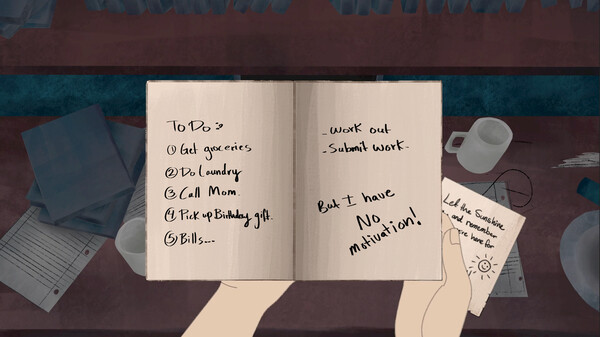 To Do :
① Get groceries
② Do Laundry
③ Call Mom.
④ Pick up Birthday gift.
⑤ Bills...
- Work out
- Submit work.
But I have
No
motivation!
Let the Sunshine
and remember
here for